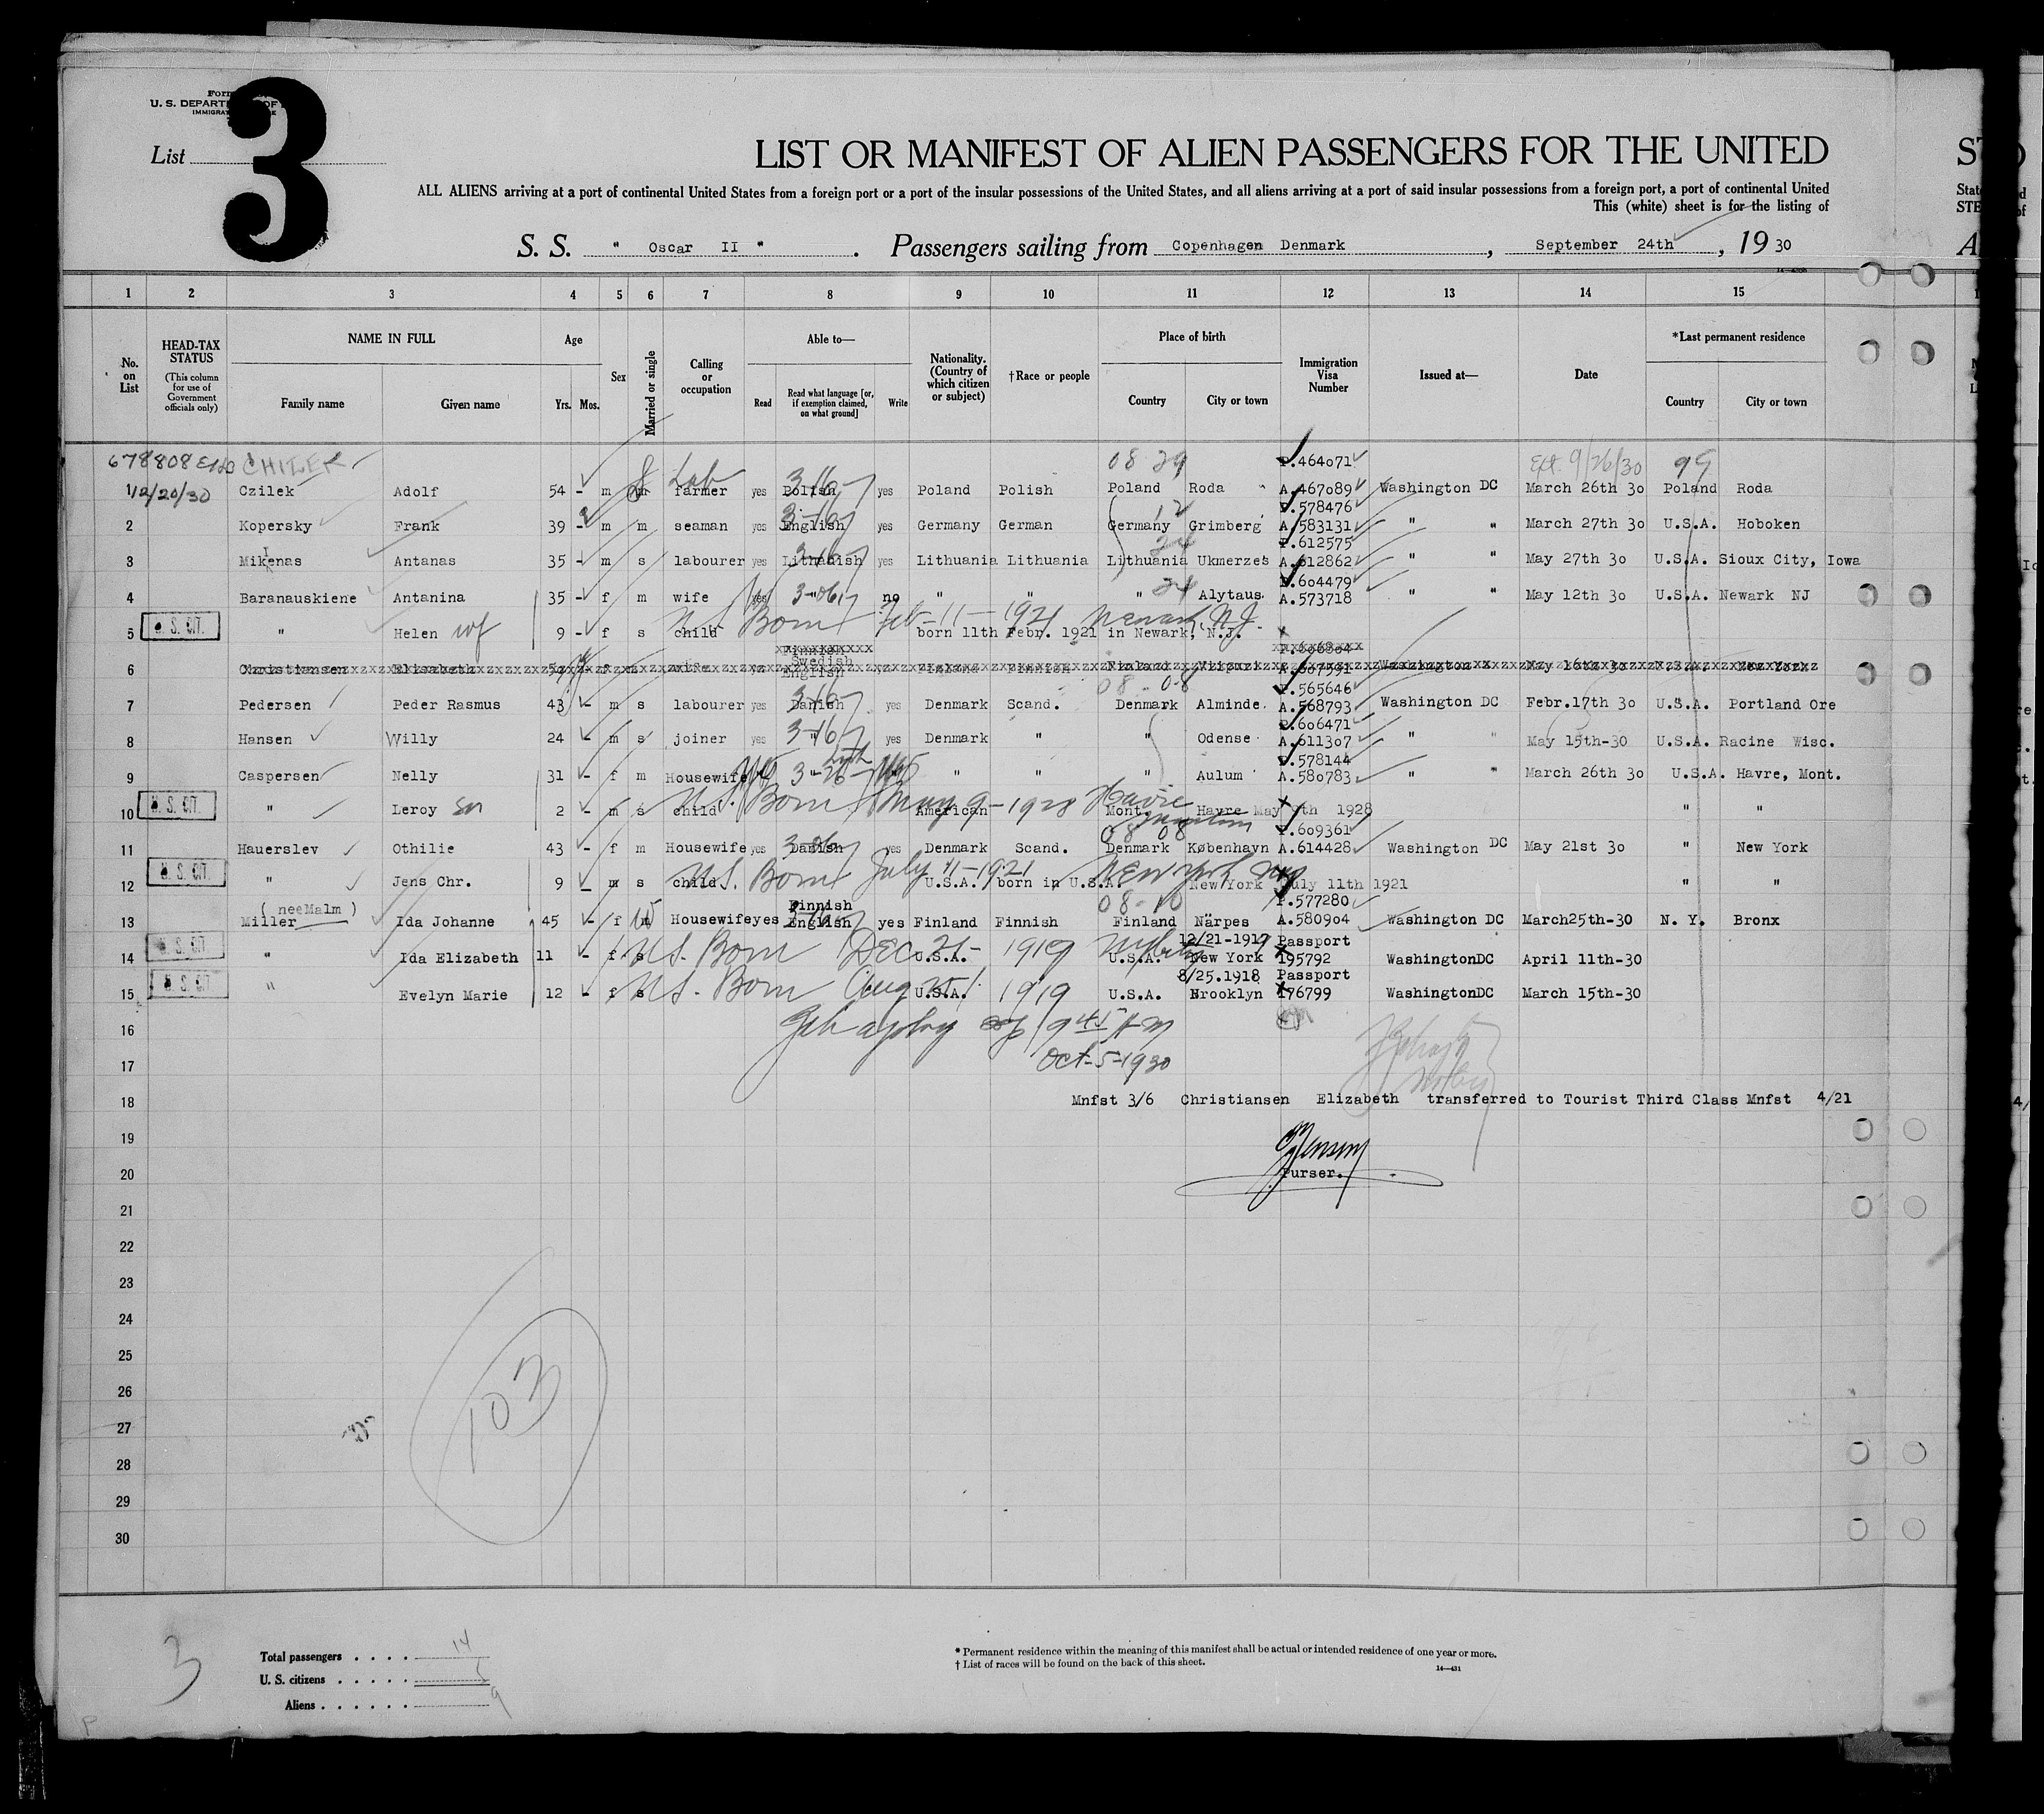 Form
U. S. DEPART OF
IMMIGRA
List 3
LIST OR MANIFEST OF ALIEN PASSENGERS FOR THE UNITED
ALL ALIENS arriving at a port of continental United States from a foreign port or a port of the insular possessions of the United States, and all aliens arriving at a port of said insular possessions from a foreign port, a port of continental United
This (white) sheet is for the listing of
S. S. " Oscar II " . Passengers sailing from Copenhagen Denmark , September 24th , 19 30
1 2 3 4 5 6 7 8 9 10 11 12 13 14 15
No. on List
HEAD-TAX STATUS (This column for use of Government officials only)
NAME IN FULL Family name Given name
Age Yrs. Mos.
Sex
Married or single
Calling or occupation
Able to— Read Read what language [or, if exemption claimed, on what ground] Write
Nationality. (Country of which citizen or subject)
†Race or people
Place of birth Country City or town
Immigration Visa Number
Issued at—
Date
*Last permanent residence Country City or town
678808 CHILEK 8 Lab 08 29 P.464071 Ext. 9/26/30 99
1 12/20/30 Czilek Adolf 54 - m m farmer yes Polish yes Poland Polish Poland Roda A.467089 Washington DC March 26th 30 Poland Roda
P.578476
2 Kopersky Frank 39 - m m seaman yes English yes Germany German Germany Grimberg A.583131 " " March 27th 30 U.S.A. Hoboken
P.612575
3 Mikenas Antanas 35 - m s labourer yes Lithanish yes Lithuania Lithuania Lithuania Ukmerzes A.612862 " " May 27th 30 U.S.A. Sioux City, Iowa
P.604479
4 Baranauskiene Antanina 35 - f m wife yes " no " " " Alytaus A.573718 " " May 12th 30 U.S.A. Newark NJ
U.S. Born Feb-11-1921 Newark, N.J.
5 U. S. CIT. " Helen 9 - f s child born 11th Febr. 1921 in Newark, N.J.
Finnish P.606804
Swedish
6 Christiansen Elisabeth 54 f m wife English Finland Finnish Finland Viipuri A.607591 Washington May 16th 30 U.S.A. New York
08 - 08 P.565646
7 Pedersen Peder Rasmus 43 - m s labourer yes Danish yes Denmark Scand. Denmark Alminde. A.568793 Washington DC Febr.17th 30 U.S.A. Portland Ore
P.606471
8 Hansen Willy 24 - m s joiner yes " yes Denmark " " Odense A.611307 " " May 15th-30 U.S.A. Racine Wisc.
P.578144
9 Caspersen Nelly 31 - f m Housewife " " " Aulum A.580783 " " March 26th 30 U.S.A. Havre, Mont.
U.S. Born May 9-1928 Havre
10 U. S. CIT. " Leroy 2 - m s child American Mont. Havre May 9th 1928 " "
08 08 P.609361
11 Hauerslev Othilie 43 - f m Housewife yes Danish yes Denmark Scand. Denmark København A.614428 Washington DC May 21st 30 " New York
U.S. Born July 11-1921 New York
12 U. S. CIT. " Jens Chr. 9 - m s child U.S.A. born in U.S.A. New York July 11th 1921 " "
(neeMalm) Finnish 08-10 P.577280
13 Miller Ida Johanne 45 - f m Housewife yes English yes Finland Finnish Finland Närpes A.580904 Washington DC March25th-30 N. Y. Bronx
12/21-1917 Passport
14 U. S. CIT. " Ida Elizabeth 11 - f s U.S. Born Dec 21- 1919 U.S.A. U.S.A. New York 195792 WashingtonDC April 11th-30
8/25.1918 Passport
15 U. S. CIT. " Evelyn Marie 12 - f s U.S. Born Aug 25 1919 U.S.A. U.S.A. Brooklyn 176799 WashingtonDC March 15th-30
16 9 45 A M
17 Oct-5-1930
18 Mnfst 3/6 Christiansen Elizabeth transferred to Tourist Third Class Mnfst 4/21
19
20 Purser.
21
22
23
24
25
26
27
28
29
30
103
3
Total passengers . . . . 14
U. S. citizens . . . . . 5
Aliens . . . . . . 9
* Permanent residence within the meaning of this manifest shall be actual or intended residence of one year or more.
† List of races will be found on the back of this sheet.
14—431